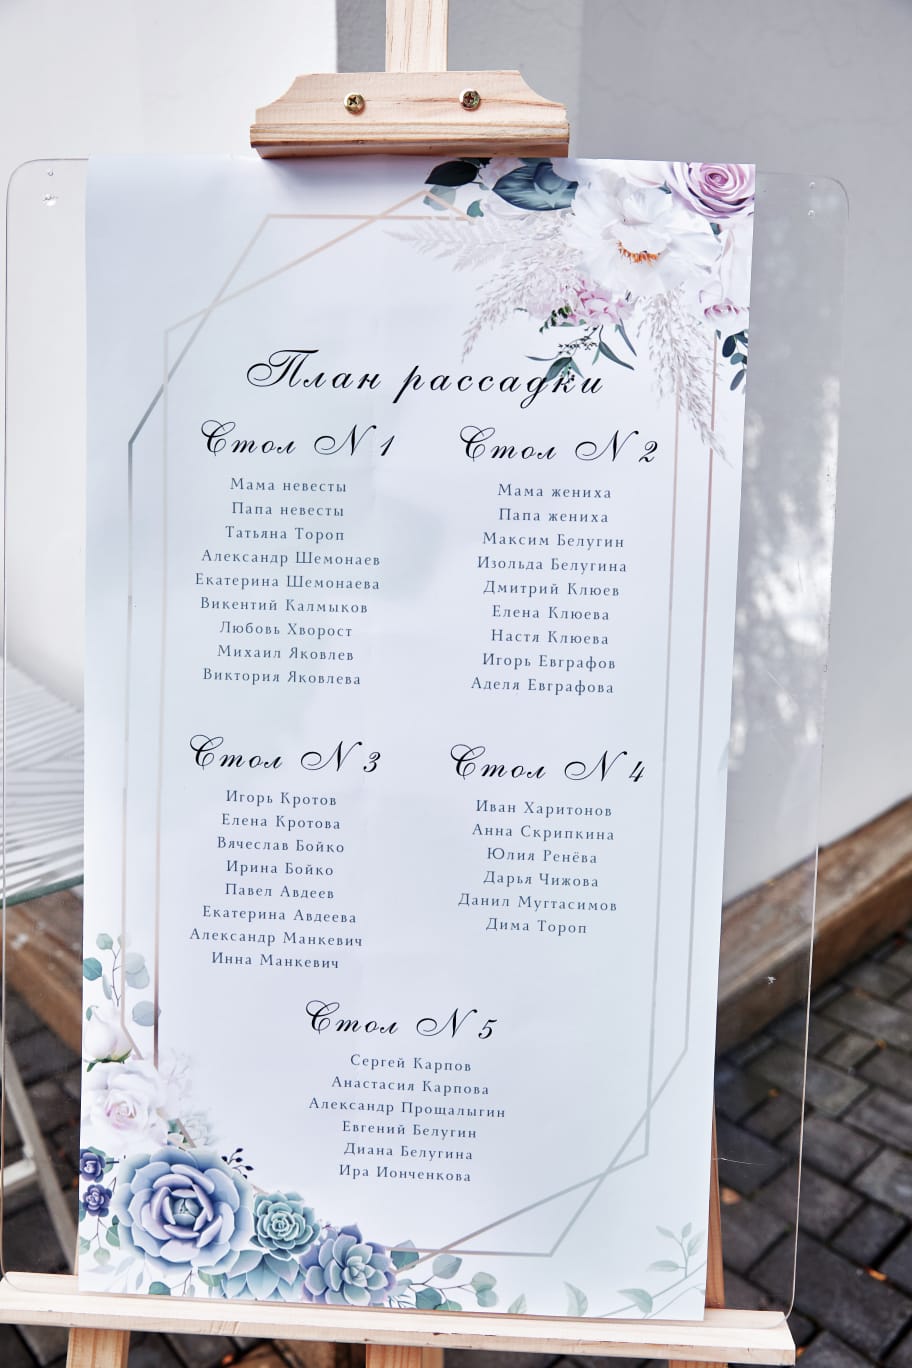 План рассадки
Стол N 1
Мама невесты
Папа невесты
Татьяна Тороп
Александр Шемонаев
Екатерина Шемонаева
Викентий Калмыков
Любовь Хворост
Михаил Яковлев
Виктория Яковлева
Стол N 2
Мама жениха
Папа жениха
Максим Белугин
Изольда Белугина
Дмитрий Клюев
Елена Клюева
Настя Клюева
Игорь Евграфов
Аделя Евграфова
Стол N 3
Игорь Кротов
Елена Кротова
Вячеслав Бойко
Ирина Бойко
Павел Авдеев
Екатерина Авдеева
Александр Манкевич
Инна Манкевич
Стол N 4
Иван Харитонов
Анна Скрипкина
Юлия Ренёва
Дарья Чижова
Данил Мугтасимов
Дима Тороп
Стол N 5
Сергей Карпов
Анастасия Карпова
Александр Прощалыгин
Евгений Белугин
Диана Белугина
Ира Ионченкова